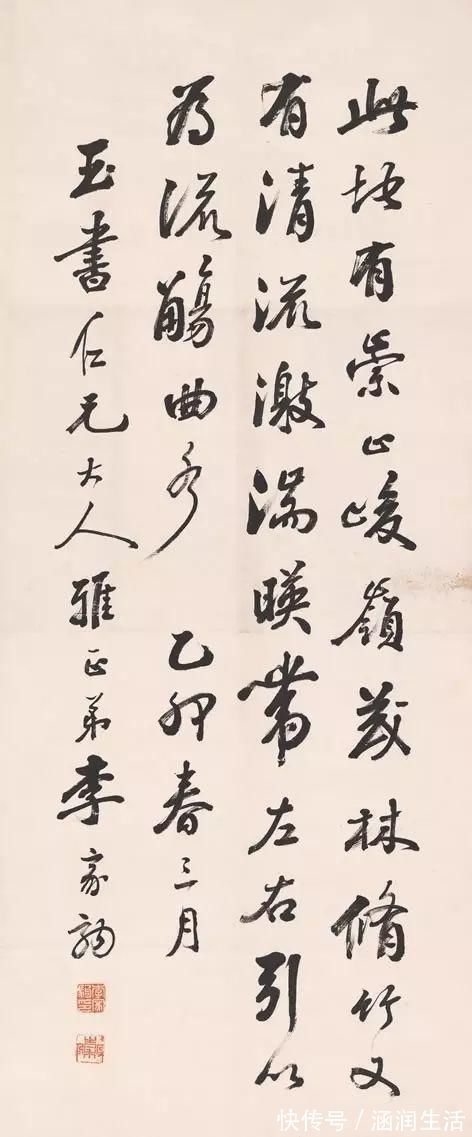 此地有崇山峻嶺茂林脩竹又
有清流激湍暎帶左右引以
為流觴曲水 乙卯春三月
玉書仁兄大人雅正弟李家駒
快传号/涵润生活